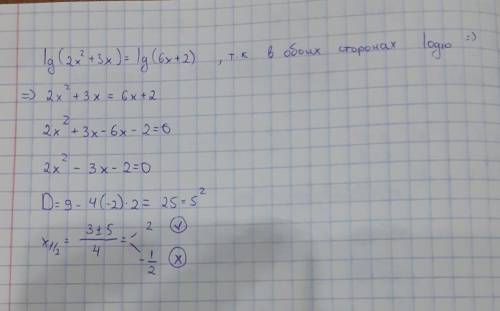 lg(2x²+3x)=lg(6x+2) , т.к в обоих сторонах log₁₀ =>
=> 2x²+3x = 6x+2
2x²+3x-6x-2=0
2x²-3x-2=0
D=9-4(-2)·2= 25=5²
x₁/₂ = (3±5)/4 = 2 ✓
-1/2 x